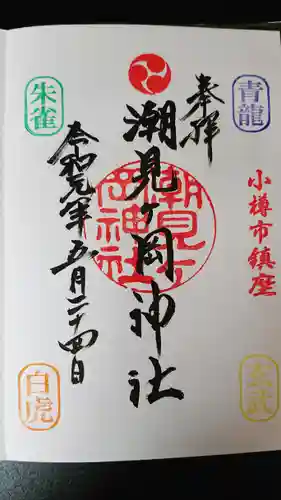 奉拝
青龍
小樽市鎮座
玄武
潮見ヶ岡神社
潮見ヶ岡神社
令和元年五月二十四日
朱雀
白虎